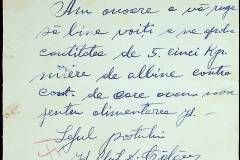 Am onoare a vă ruga
să bine voiți a ne aproba
cantitatea de 5. cinci Kgr.
miere de albine contra
cost. de care avem nevoe
pentru alimentarea
Șeful postului